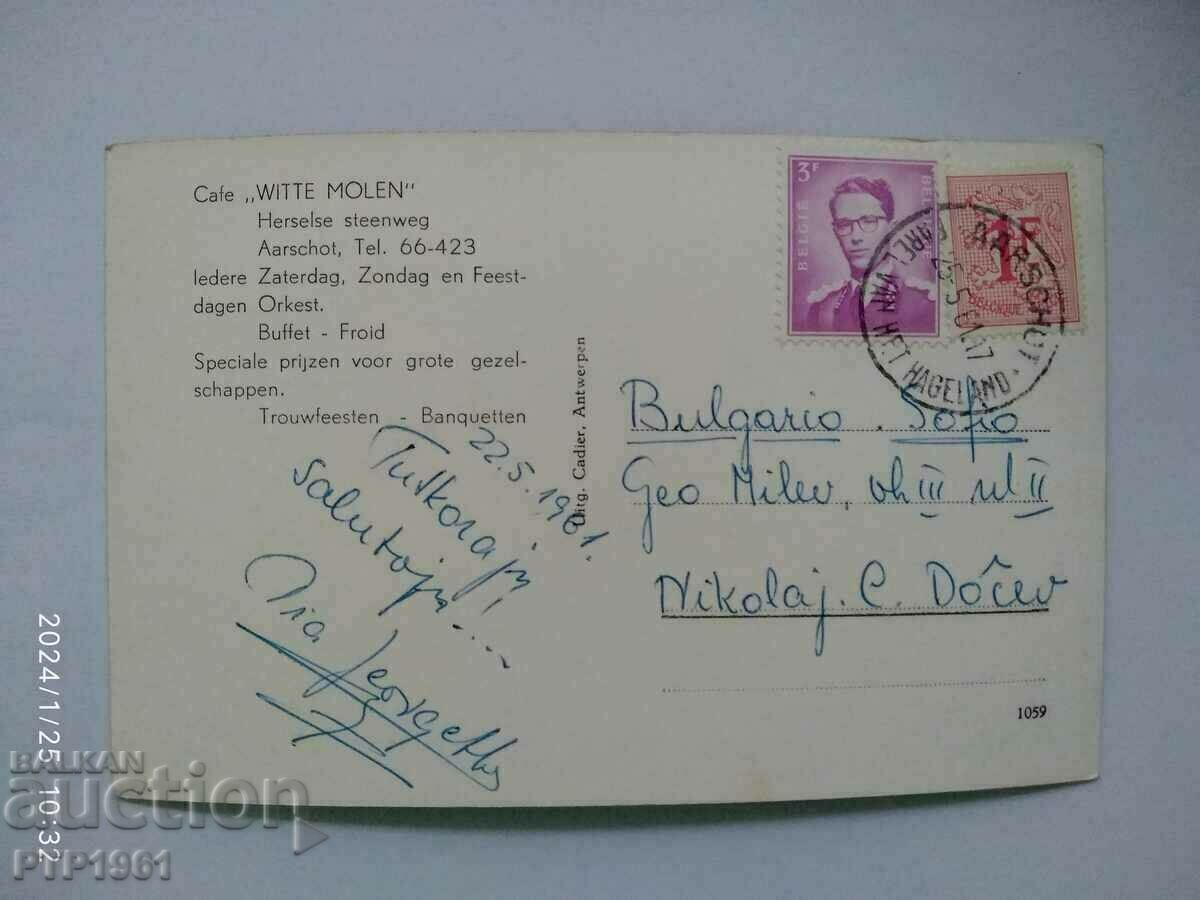 Cafe „WITTE MOLEN"
Herselse steenweg
Aarschot, Tel. 66-423
Iedere Zaterdag, Zondag en Feest-
dagen Orkest.
Buffet - Froid
Speciale prijzen voor grote gezel-
schappen.
Trouwfeesten - Banquetten
22.5.1961.
Tutkorajn
salutojn....
Via Georgette
Uitg. Cadier, Antwerpen
3F
BELGIË
BELGIQUE
1F
BELGIQUE
AARSCHOT
25-5 61 17
PAREL VAN HET HAGELAND
Bulgario. Sofio
Geo Milev, vh III ul II
Nikolaj. C. Dôĉev
1059
2024/1/25 10:32
BALKAN
auction
PTP1961